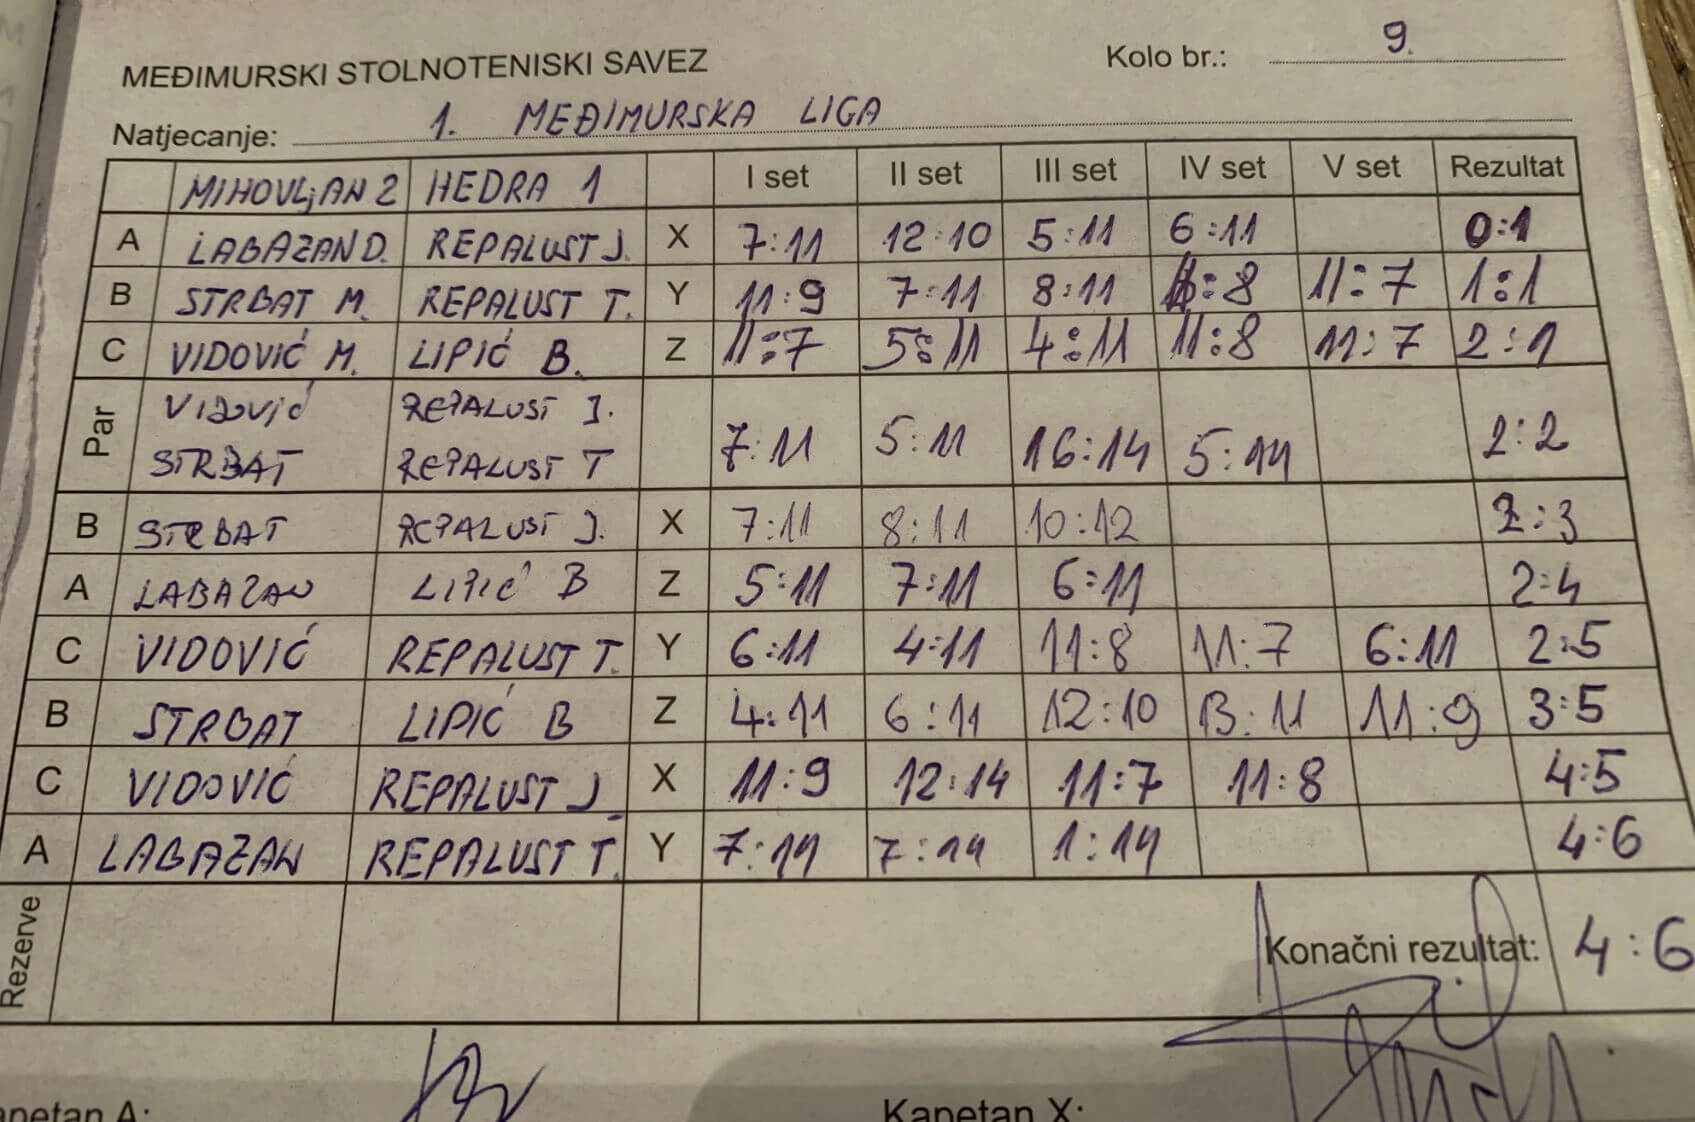 MEĐIMURSKI STOLNOTENISKI SAVEZ Kolo br.: 9.
Natjecanje: 1. MEĐIMURSKA LIGA
MIHOVLjAN 2 HEDRA 1 I set II set III set IV set V set Rezultat
A LABAZAN D. REPALUST J. X 7:11 12:10 5:11 6:11 0:1
B STRBAT M. REPALUST T. Y 11:9 7:11 8:11 11:8 11:7 1:1
C VIDOVIĆ M. LIPIĆ B. Z 11:7 5:11 4:11 11:8 11:7 2:1
Par VIDOVIĆ REPALUST J. 7:11 5:11 16:14 5:11 2:2
STRBAT REPALUST T
B STRBAT REPALUST J. X 7:11 8:11 10:12 2:3
A LABAZAN LIPIĆ B Z 5:11 7:11 6:11 2:4
C VIDOVIĆ REPALUST T. Y 6:11 4:11 11:8 11:7 6:11 2:5
B STRBAT LIPIĆ B Z 4:11 6:11 12:10 13:11 11:9 3:5
C VIDOVIĆ REPALUST J X 11:9 12:14 11:7 11:8 4:5
A LABAZAN REPALUST T. Y 7:11 7:11 1:11 4:6
Rezerve Konačni rezultat: 4:6
A: Kapetan X: